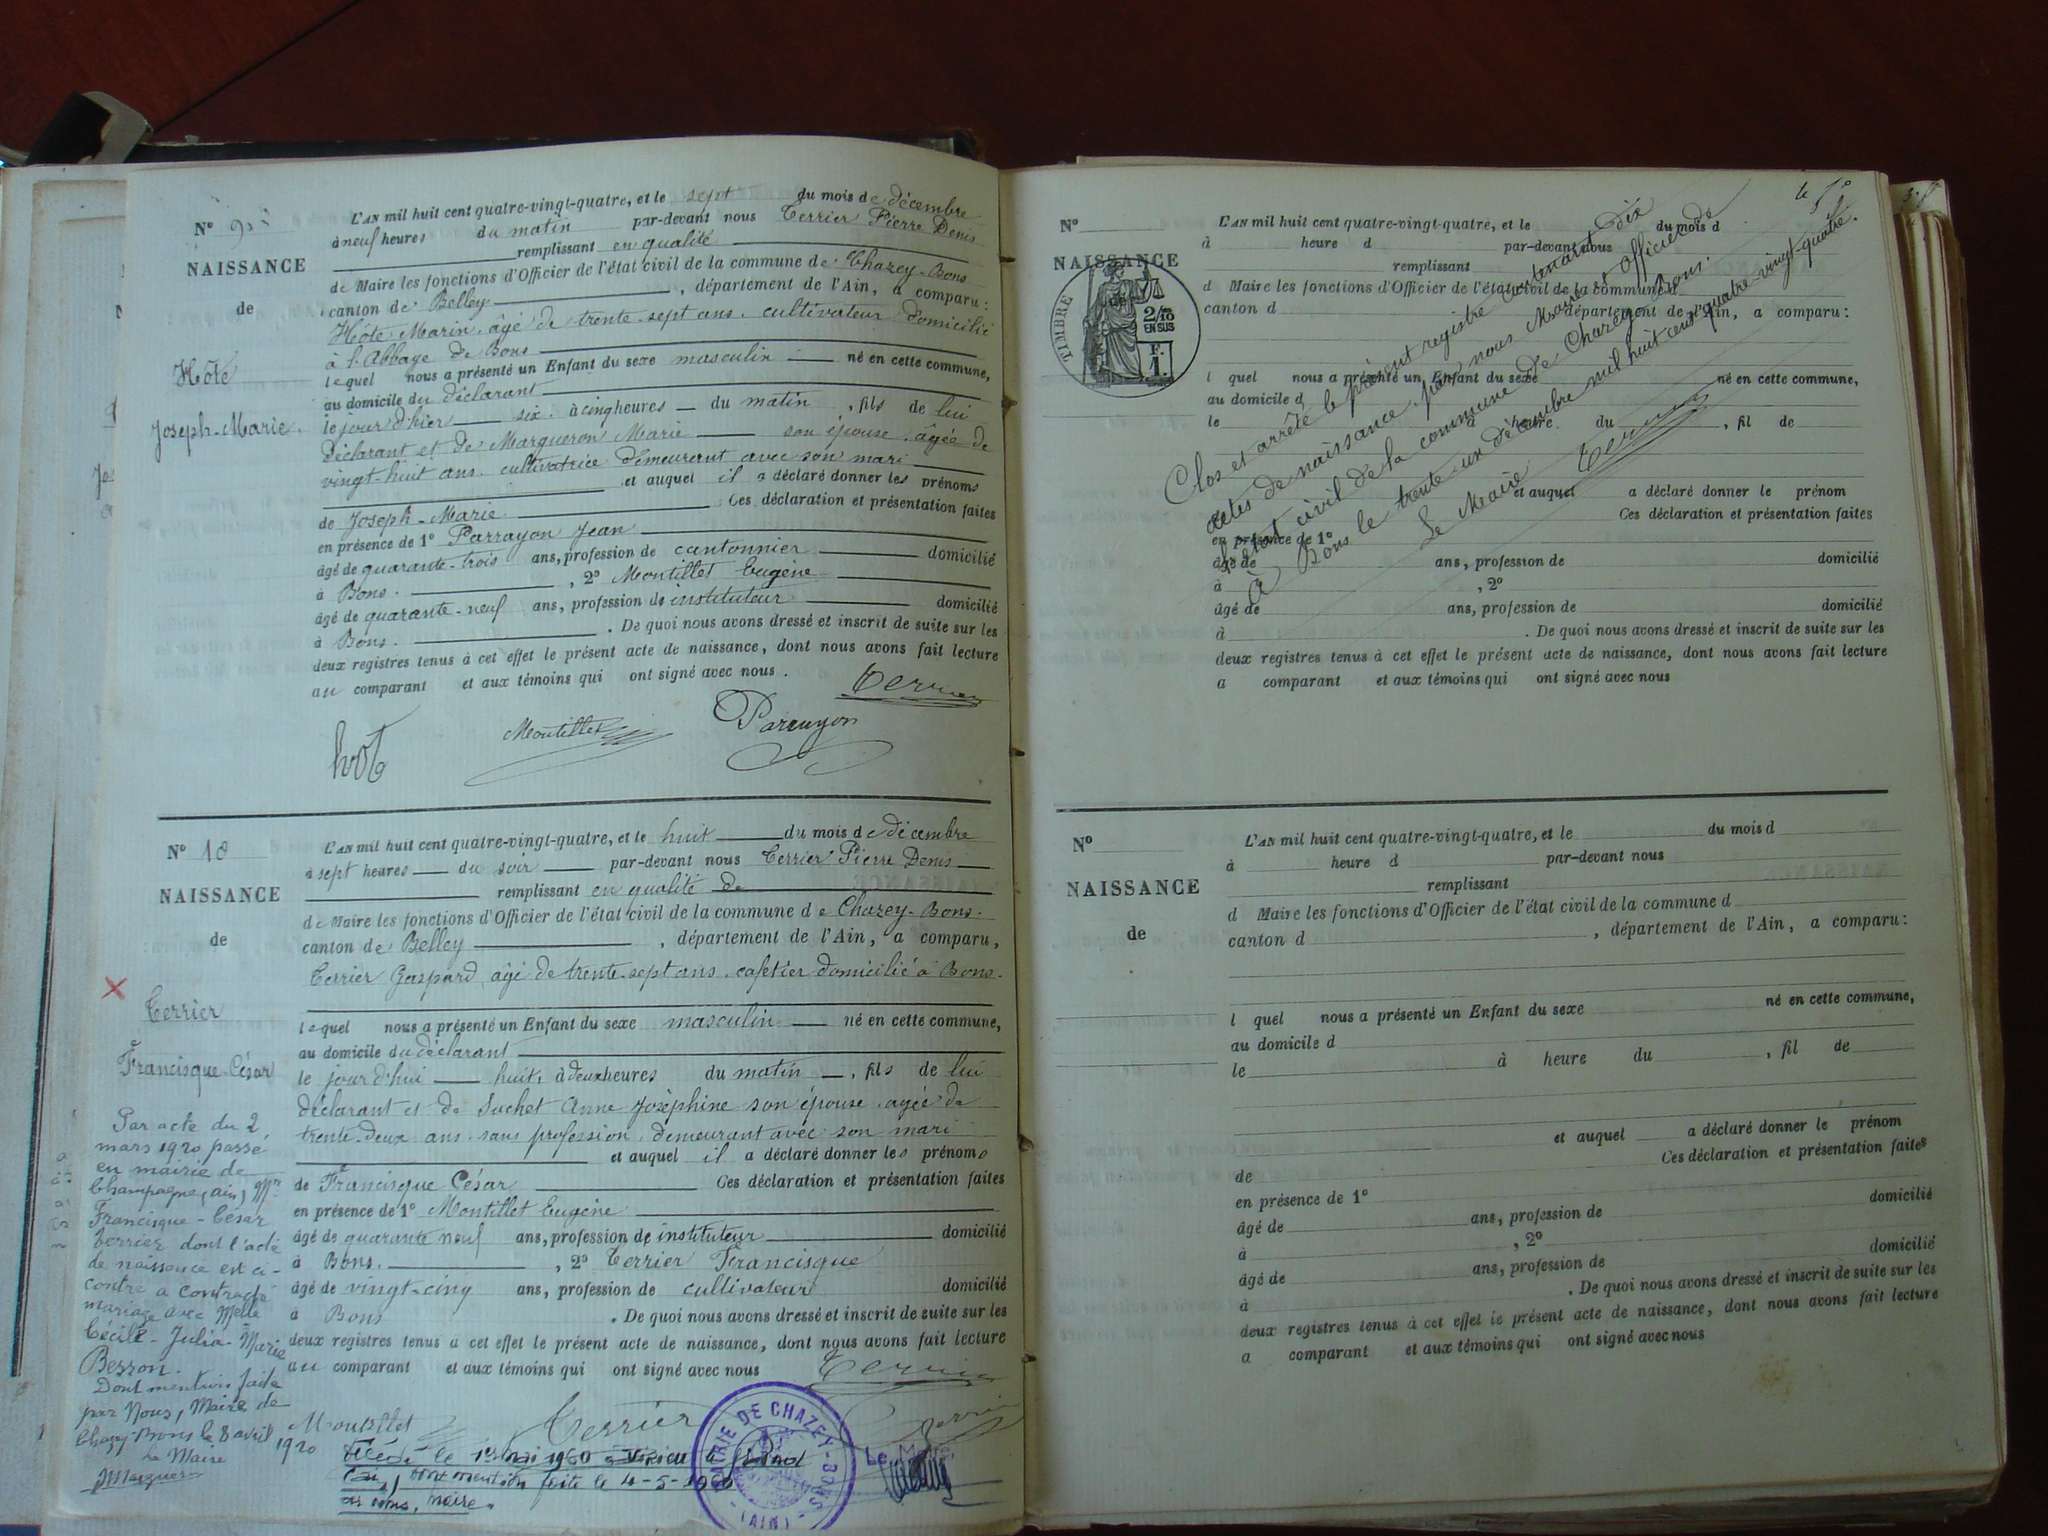 L'AN mil huit cent quatre-vingt-quatre, et le sept du mois de décembre
à neuf heures du matin par-devant nous Terrier Pierre Denis
remplissant en qualité
de Maire les fonctions d'Officier de l'état civil de la commune de Chazey-Bons
canton de Belley, département de l'Ain, a comparu:
Hôte Marin âgé de trente-sept ans, cultivateur domicilié
à l'Abbaye de Bons
lequel nous a présenté un Enfant du sexe masculin né en cette commune,
au domicile du déclarant
le jour d'hier six à cinq heures du matin, fils de lui
déclarant et de Margueron Marie son épouse, âgée de
vingt-huit ans, cultivatrice demeurant avec son mari
et auquel il a déclaré donner les prénoms
de Joseph-Marie. Ces déclaration et présentation faites
en présence de 1º Parrayon Jean
âgé de quarante-trois ans, profession de cantonnier domicilié
à Bons, 2º Montillet Eugène
âgé de quarante-neuf ans, profession de instituteur domicilié
à Bons. De quoi nous avons dressé et inscrit de suite sur les
deux registres tenus à cet effet le présent acte de naissance, dont nous avons fait lecture
au comparant et aux témoins qui ont signé avec nous.
Nº 9
NAISSANCE
de
Hôte
Joseph-Marie.
Terrier
hôte Montillet Parrayon
L'AN mil huit cent quatre-vingt-quatre, et le huit du mois de décembre
à sept heures du soir par-devant nous Terrier Pierre Denis
remplissant en qualité de
de Maire les fonctions d'Officier de l'état civil de la commune de Chazey-Bons.
canton de Belley, département de l'Ain, a comparu,
Terrier Gaspard, âgé de trente-sept ans, cafetier domicilié à Bons.
lequel nous a présenté un Enfant du sexe masculin né en cette commune,
au domicile du déclarant
le jour d'hui huit, à deux heures du matin, fils de lui
déclarant et de Suchet Anne Joséphine son épouse, agée de
trente-deux ans, sans profession, demeurant avec son mari
et auquel il a déclaré donner les prénoms
de Francisque César Ces déclaration et présentation faites
en présence de 1º Montillet Eugène
âgé de quarante neuf ans, profession de instituteur domicilié
à Bons, 2º Terrier Francisque
âgé de vingt-cinq ans, profession de cultivateur domicilié
à Bons. De quoi nous avons dressé et inscrit de suite sur les
deux registres tenus à cet effet le présent acte de naissance, dont nous avons fait lecture
au comparant et aux témoins qui ont signé avec nous
Nº 10
NAISSANCE
de
Terrier
Francisque-César
Par acte du 2
mars 1920 passé
en mairie de
Champagne, (ain), Mr
Francisque-César
Terrier dont l'acte
de naissance est ci-
contre a contracté
mariage avec Melle
Cécile-Julia-Marie
Berron.
Dont mention faite
par Nous, Maire de
Chazey-Bons le 8 avril 1920
Le Maire
Terrier
Montillet Terrier
Décédé le 1er mai 1960 à Virieu le Grand
(Ain), dont mention faite le 4-5-1960
par nous, maire.
MAIRIE DE CHAZEY-BONS (AIN)
Le Maire,
Nº
NAISSANCE
TIMBRE
2/10
EN SUS
F.
1.
L'AN mil huit cent quatre-vingt-quatre, et le du mois d
à heure d par-devant nous
remplissant
d Maire les fonctions d'Officier de l'état civil de la commune d
canton d département de l'Ain, a comparu:
l quel nous a présenté un Enfant du sexe né en cette commune,
au domicile d
le à heure du, fil de
et auquel a déclaré donner le prénom
Ces déclaration et présentation faites
en présence de 1º
âgé de ans, profession de domicilié
à, 2º
âgé de ans, profession de domicilié
à. De quoi nous avons dressé et inscrit de suite sur les
deux registres tenus à cet effet le présent acte de naissance, dont nous avons fait lecture
a comparant et aux témoins qui ont signé avec nous
Clos et arrêté le présent registre contenant dix
actes de naissance, par nous Maire et Officier de
l'état civil de la commune de Chazey-Bons.
à Bons le trente-un décembre mil huit cent quatre-vingt-quatre.
Le Maire
Terrier
Nº
NAISSANCE
de
L'AN mil huit cent quatre-vingt-quatre, et le du mois d
à heure d par-devant nous
remplissant
d Maire les fonctions d'Officier de l'état civil de la commune d
canton d, département de l'Ain, a comparu:
l quel nous a présenté un Enfant du sexe né en cette commune,
au domicile d
le à heure du, fil de
et auquel a déclaré donner le prénom
de Ces déclaration et présentation faites
en présence de 1º
âgé de ans, profession de domicilié
à, 2º
âgé de ans, profession de domicilié
à. De quoi nous avons dressé et inscrit de suite sur les
deux registres tenus à cet effet le présent acte de naissance, dont nous avons fait lecture
a comparant et aux témoins qui ont signé avec nous